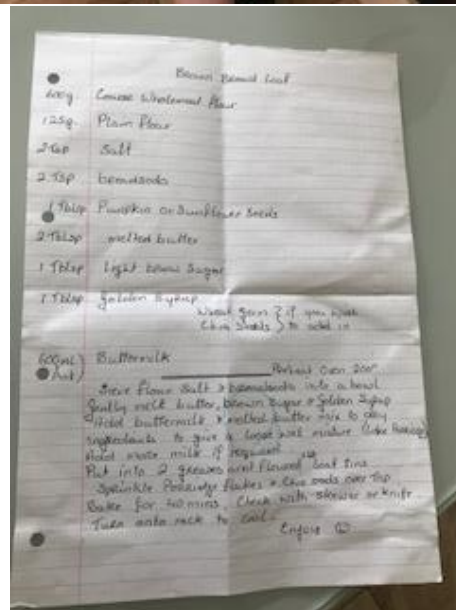 Brown Bread Loaf
600g Coarse Wholemeal flour
125g Plain flour
2 Tsp Salt
2 Tsp breadsoda
1 Tblsp Pumpkin or Sunflower Seeds
2 Tblsp melted butter
1 Tblsp Light brown Sugar
1 Tblsp Golden Syrup
Wheat Germ } if you wish
Chia Seeds } to add in
600ml) Buttermilk
Preheat Oven 200°
Sieve flour Salt & breadsoda into a bowl
Gently melt butter, brown Sugar & Golden Syrup
Add buttermilk & melted butter mix to dry
ingredients to give a loose wet mixture (like Porridge)
Add more milk if required
Put into 2 greased and floured loaf tins
Sprinkle Porridge flakes & Chia seeds over Top
Bake for 40 mins. Check with skewer or knife
Turn onto rack to cool.
Enjoy